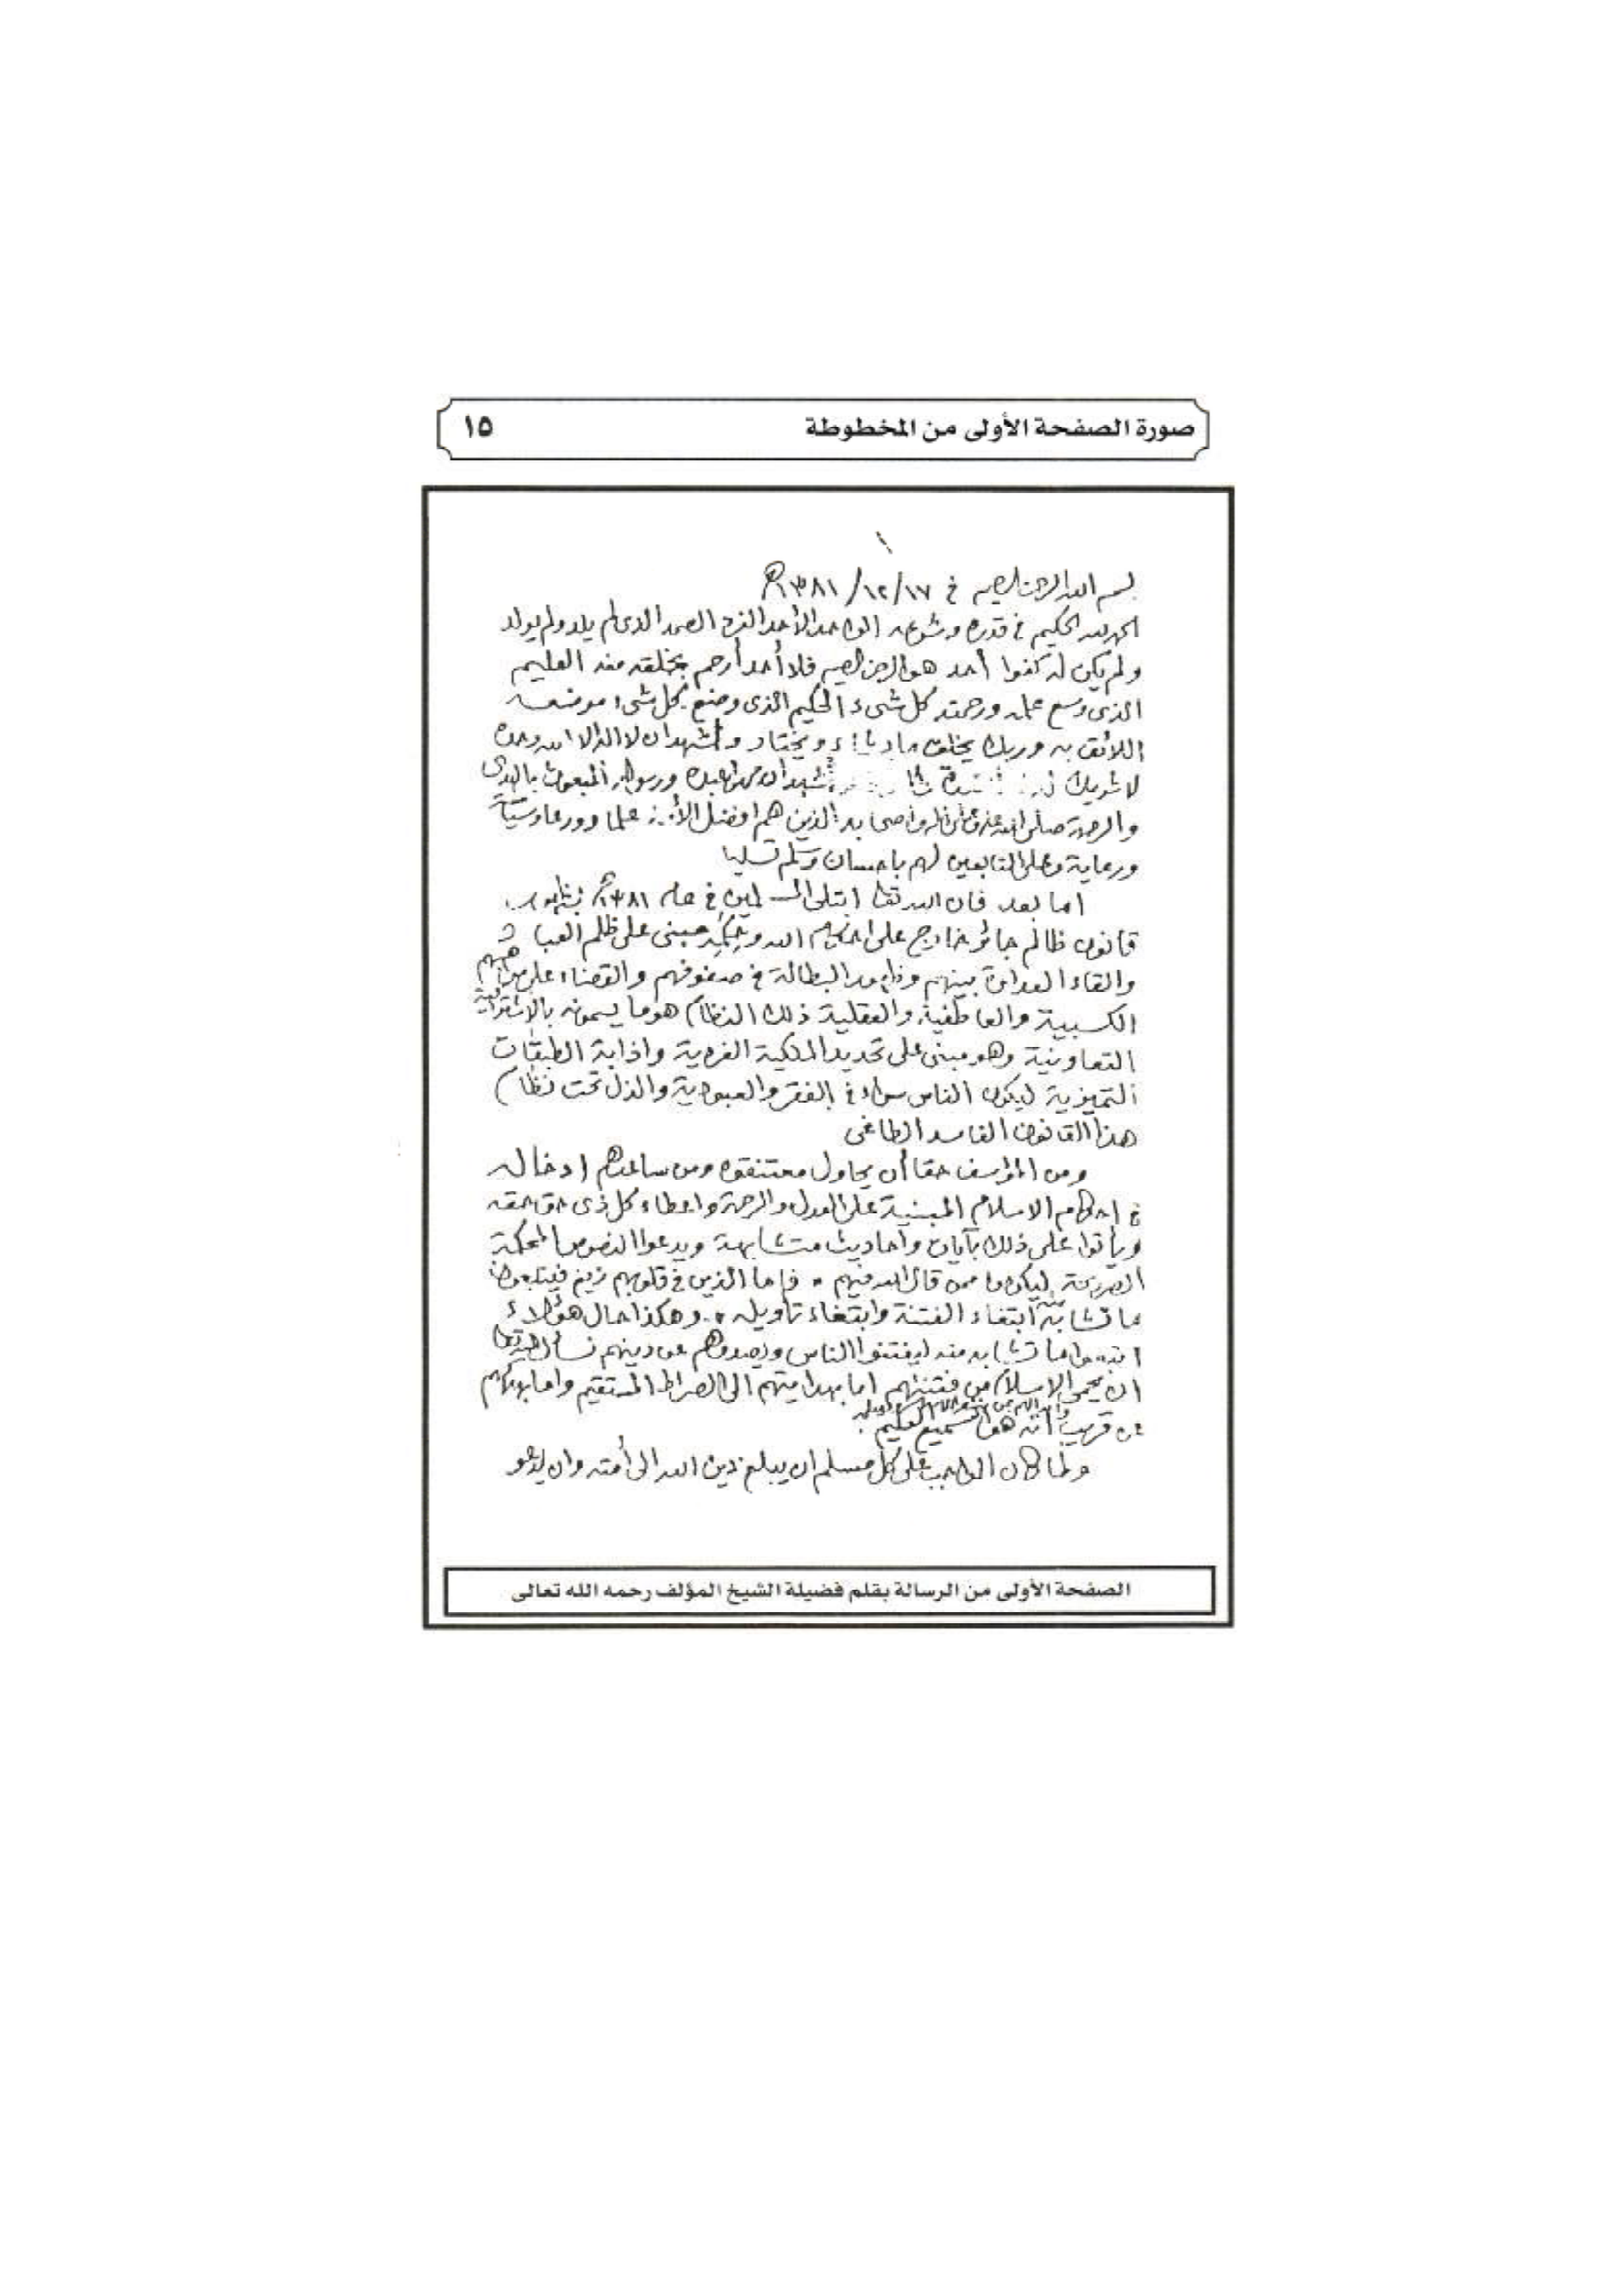 صورة الصفحة الأولى من المخطوطة
١٥
١
بسم الله الرحمن الرحيم في ١٧/١٢/١٣٨١هـ
الحمد لله الحكيم في قدره وشرعه الواحد الأحد الفرد الصمد الذى لم يلد ولم يولد
ولم يكن له كفوا أحد هو الرحمن الرحيم فلا أحد أرحم بخلقه منه العليم
الذى وسع علمه ورحمته كل شىء الحكيم الذى وضع كل شىء موضعه
اللائق به وربك يخلق ما يشاء ويختار وأشهد ان لا اله الا الله وحده
لا شريك له أشهد ان محمدا عبده ورسوله المبعوث بالهدى
والرحمة صلى الله عليه وعلى آله وأصحابه الذين هم افضل الأمة علما وورعا وسياسة
ورعاية وعلى التابعين لهم باحسان وسلم تسليما
اما بعد فان الله تعالى ابتلى المسلمين في عام ١٣٨١هـ بظهور
قانون ظالم جائر خارج على احكام الله وحكمه مبنى على ظلم العباد
والقاء العداوة بينهم وظهور البطالة في صفوفهم والقضاء على مواهبهم
الكسبية والعاطفية والعقلية ذلك النظام هو ما يسمونه بالاشتراكية
التعاونية وهو مبنى على تحديد الملكية الفردية واذابة الطبقات
التميزية ليكون الناس سواء في الفقر والعبودية والذل تحت نظام
هذا القانون الفاسد الطاغى
ومن المؤسف حقا أن يحاول معتنقوه ومن ساعدهم ادخاله
في احكام الاسلام المبنية على العدل والرحمة واعطاء كل ذى حق حقه
ويأتوا على ذلك بآيات وأحاديث متشابهة ويدعوا النصوص المحكمة
الصريحة ليكونوا ممن قال الله فيهم فاما الذين في قلوبهم زيغ فيتبعون
ما تشابه منه ابتغاء الفتنة وابتغاء تأويله وهكذا حال هؤلاء
اتبعوا ما تشابه منه ليفتنوا الناس ويصدوهم عن دينهم نسأل الله تعالى
ان يحمى الاسلام من فتنتهم اما بهدايتهم الى الصراط المستقيم واما بهلاكهم
عن قريب انه هو السميع العليم
ولما كان الواجب على كل مسلم ان يبلغ دين الله الى أمته وان يدعو
الصفحة الأولى من الرسالة بقلم فضيلة الشيخ المؤلف رحمه الله تعالى